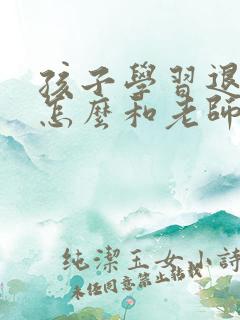 孩子學習退
怎麼和老師
純潔玉女小詩
未经同意禁止转载